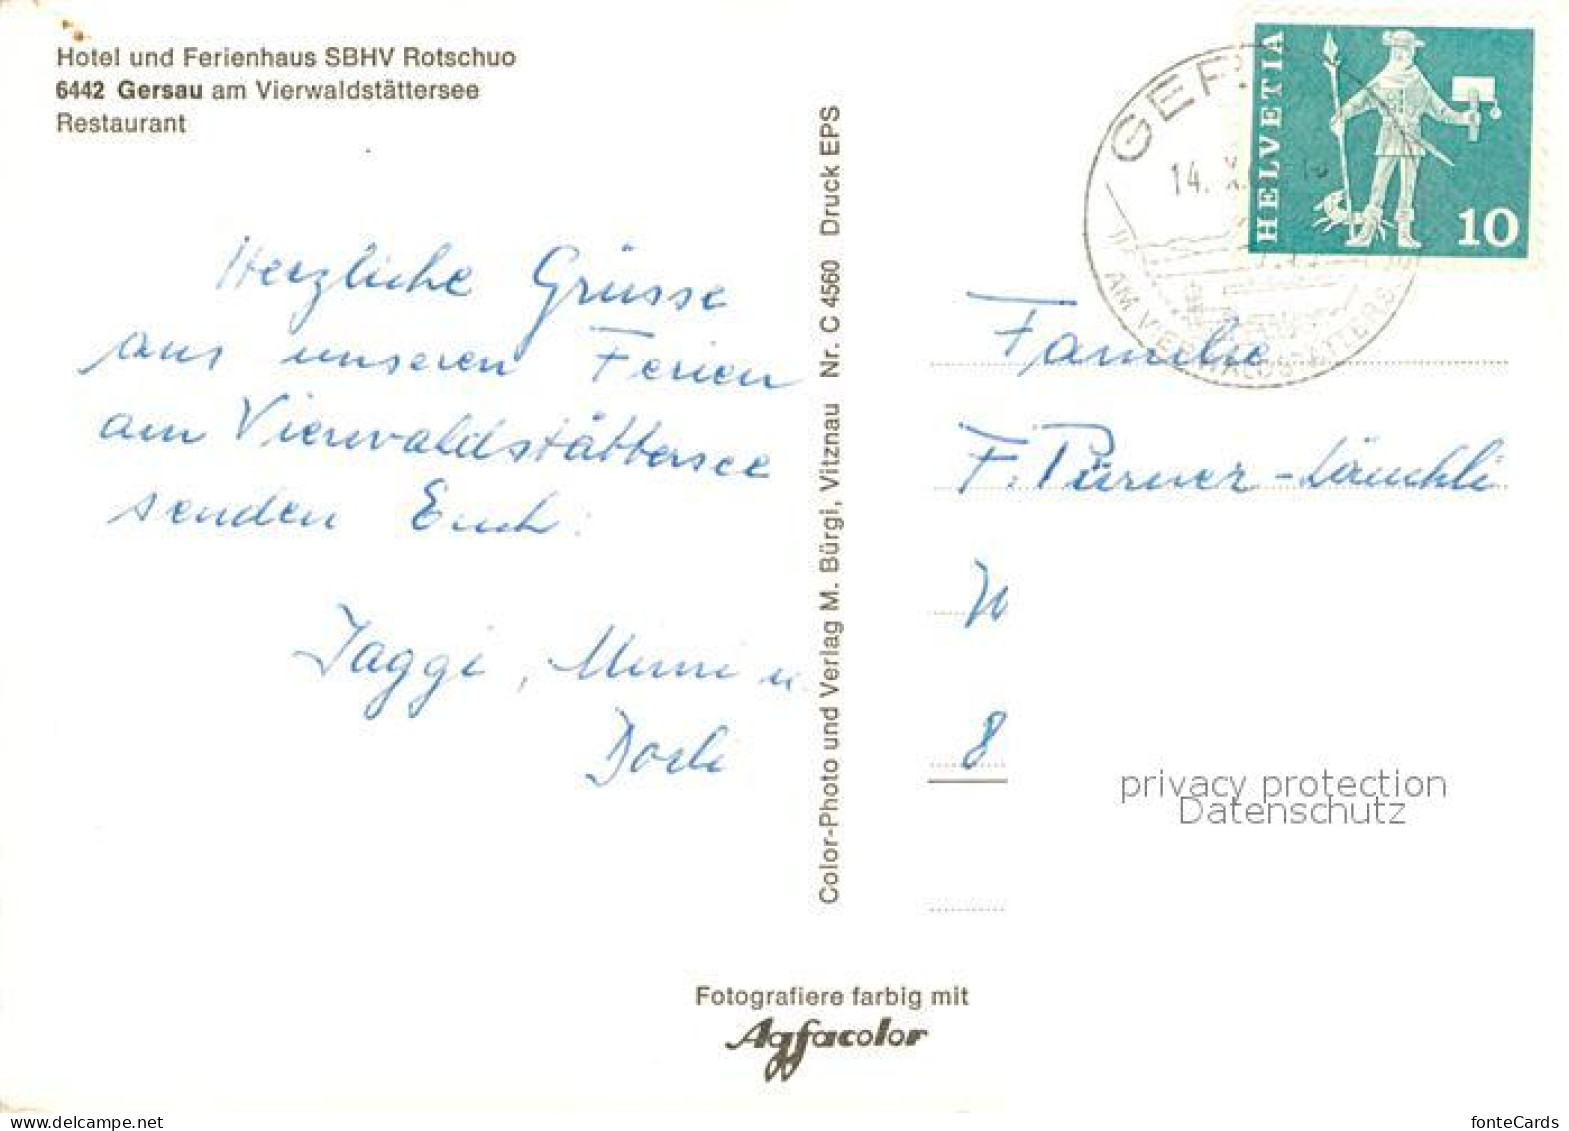 Hotel und Ferienhaus SBHV Rotschuo
6442 Gersau am Vierwaldstättersee
Restaurant
Herzliche Grüsse
aus unseren Ferien
am Vierwaldstättersee
senden Euch:
Jaggi, Mimi u.
Dorli
Color-Photo und Verlag M. Bürgi, Vitznau Nr. C 4560 Druck EPS
HELVETIA
10
GER
14. X.
AM VIERWALDSTÄTTERS
Familie
F. Pürner-Läuchli
8
privacy protection
Datenschutz
Fotografiere farbig mit
Agfacolor
www.delcampe.net
fonteCards